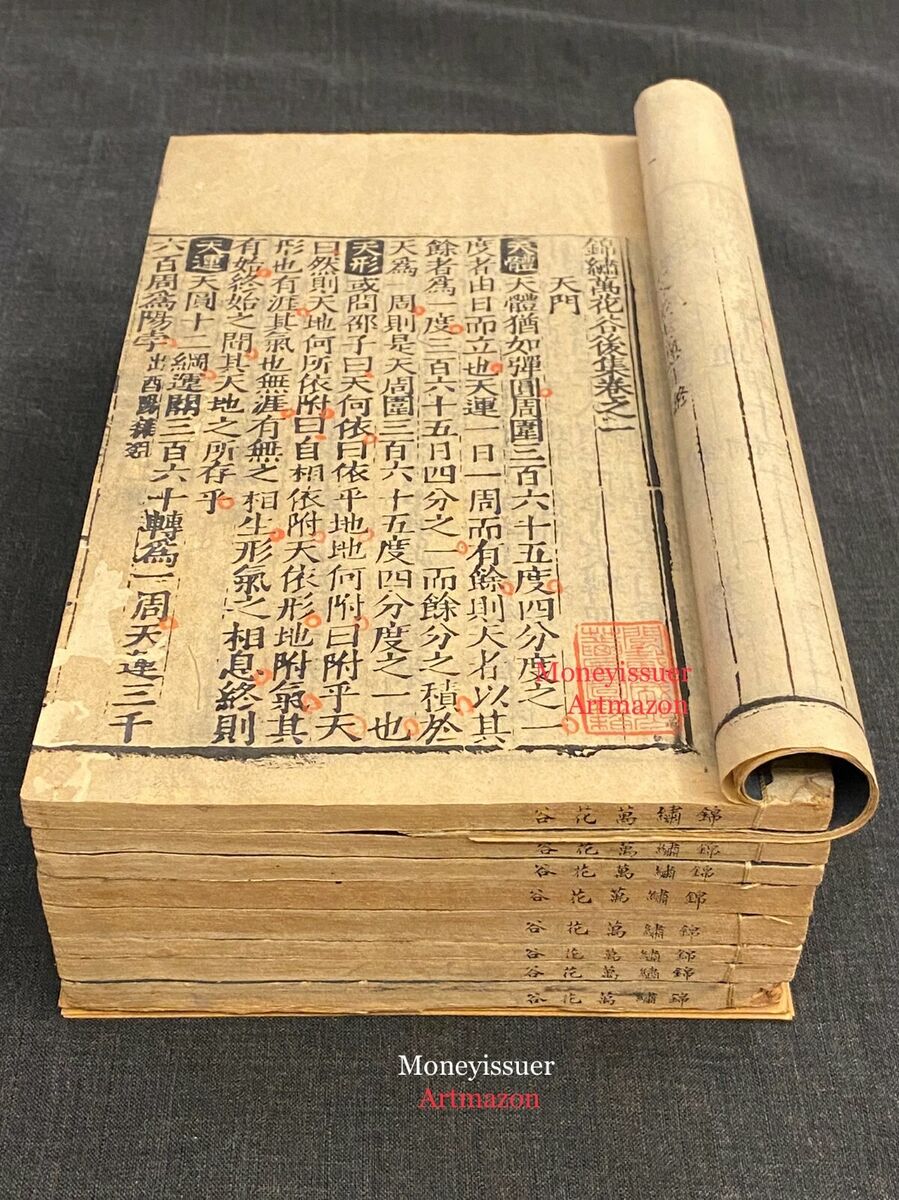 錦繡萬花谷後集卷之一
天門
天體天體猶如彈圓周圍三百六十五度四分度之一
度者由日而立也天運一日一周而有餘則天者以其
餘者為一度三百六十五日四分之一而餘分之積於
天為一周則是天周圍三百六十五度四分度之一也
天形或問邵子曰天何依曰依乎地地何附曰附乎天
曰然則天地何所依附曰自相依附天依形地附氣其
形也有涯其氣也無涯有無之相生形氣之相息終則
有始終始之間其天地之所存乎
天運天圓十二綱運關三百六十轉為一周天運三千
六百周為陽孛出酉陽雜俎
Moneyissuer
Artmazon
錦繡萬花谷
錦繡萬花谷
錦繡萬花谷
錦繡萬花谷
錦繡萬花谷
錦繡萬花谷
錦繡萬花谷
錦繡萬花谷
Moneyissuer
Artmazon